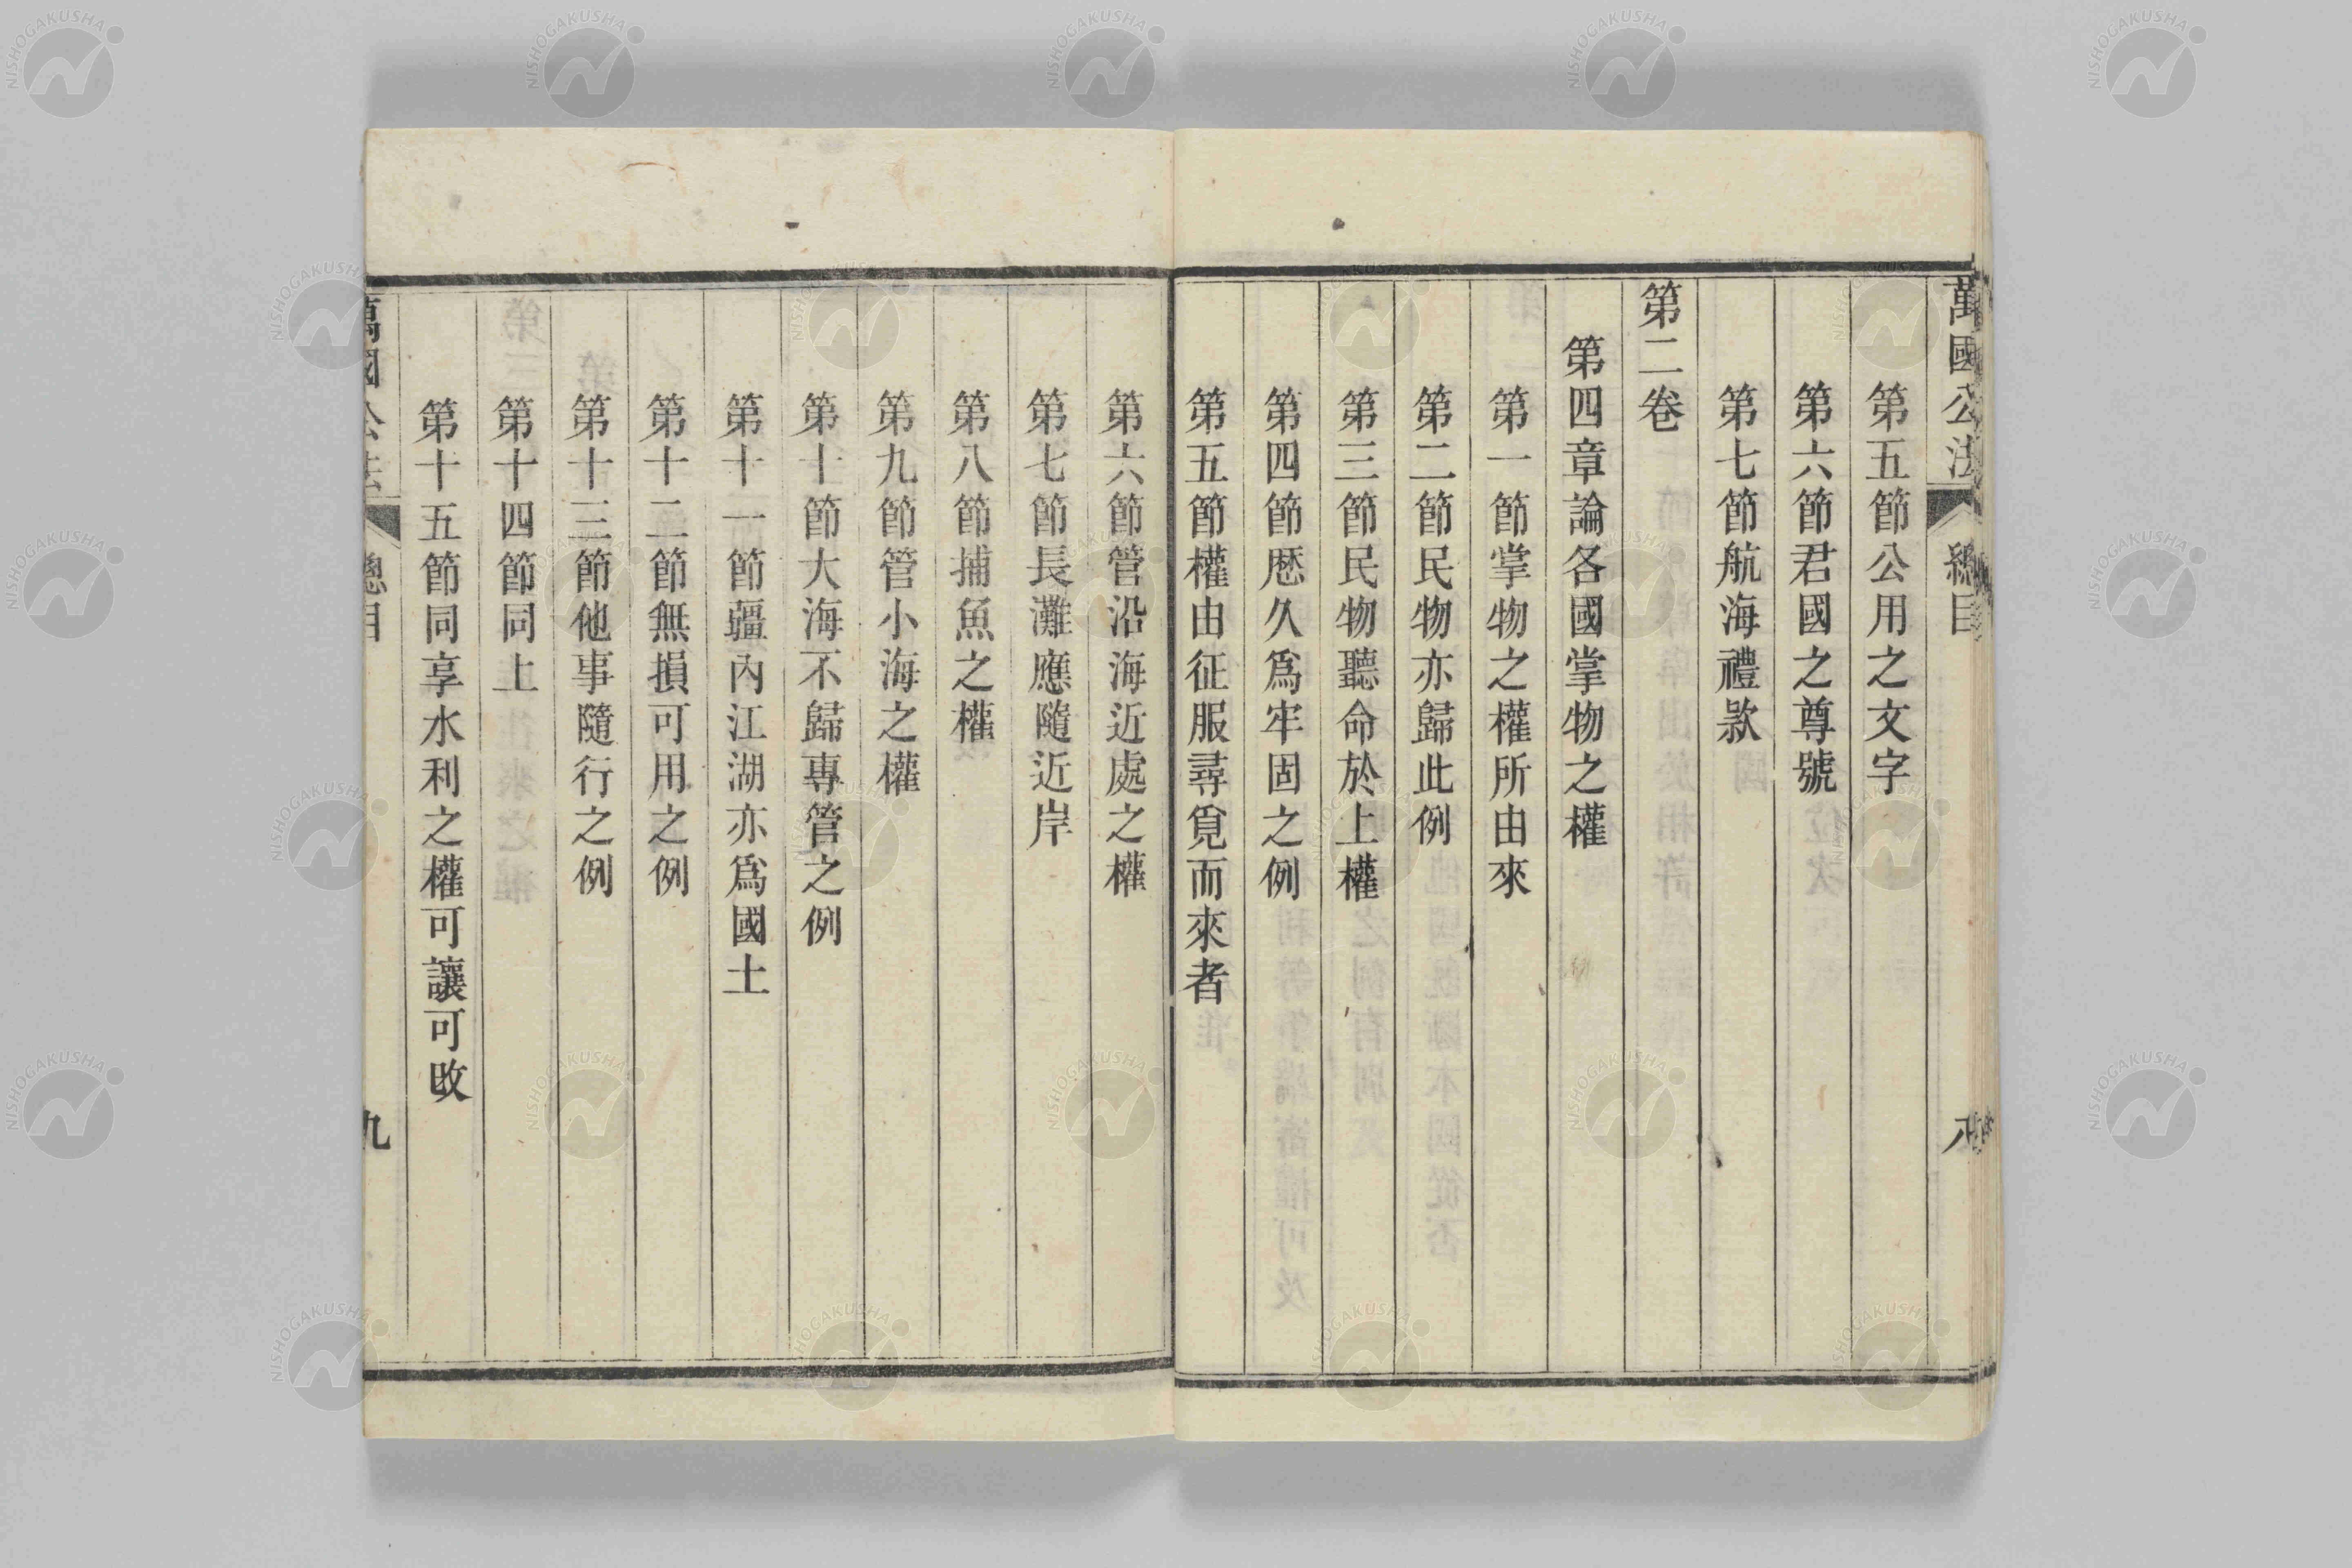 萬國公法 總目 八
第五節公用之文字
第六節君國之尊號
第七節航海禮款
第二卷
第四章論各國掌物之權
第一節掌物之權所由來
第二節民物亦歸此例
第三節民物聽命於上權
第四節歷久爲牢固之例
第五節權由征服尋覓而來者
第六節管沿海近處之權
第七節長灘應隨近岸
第八節捕魚之權
第九節管小海之權
第十節大海不歸專管之例
第十一節疆內江湖亦爲國土
第十二節無損可用之例
第十三節他事隨行之例
第十四節同上
第十五節同享水利之權可讓可改
萬國公法 總目 九
NISHOGAKUSHA